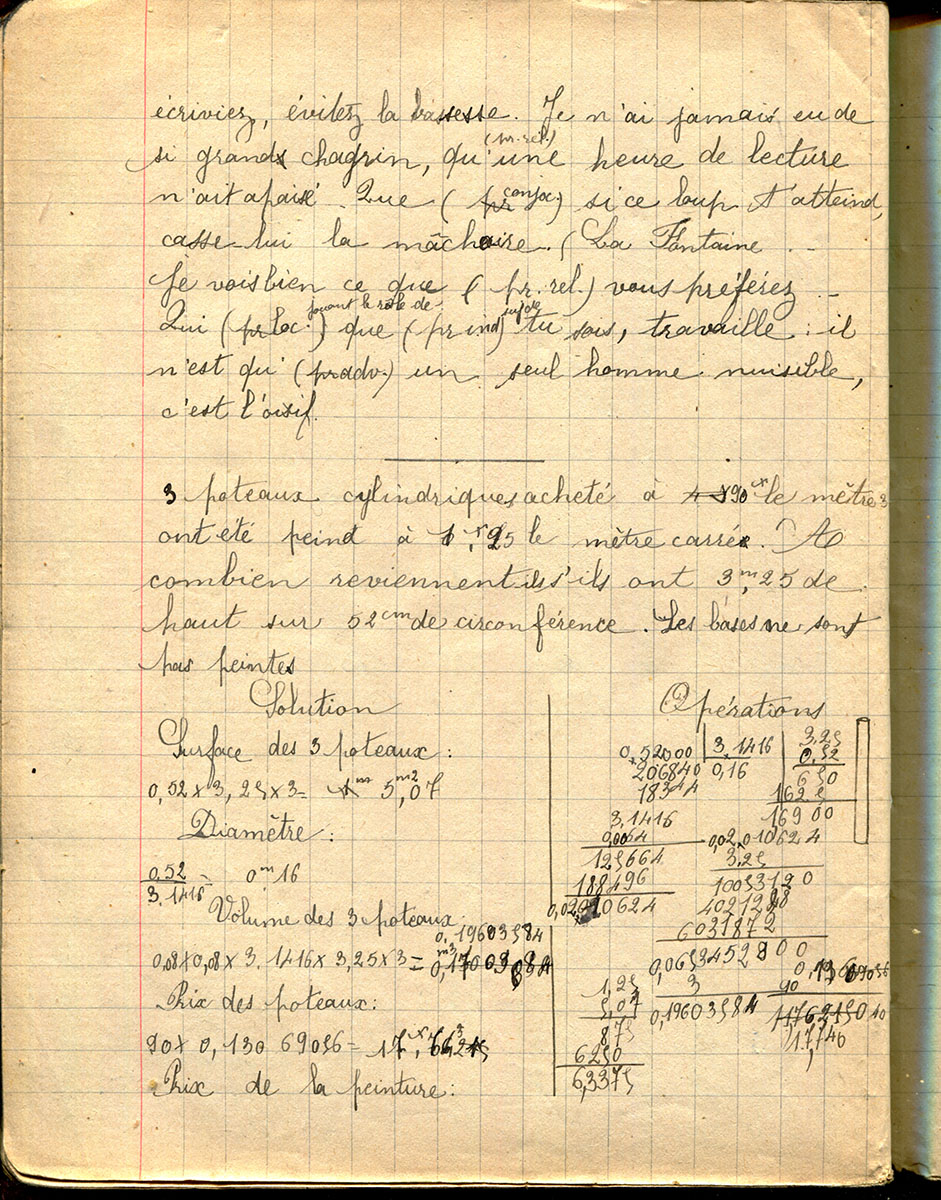 écriviez, évitez la bassesse. Je n'ai jamais eu de
(pr. rel.)
si grands chagrin, qu'une heure de lecture
n'ait apaisé. Que (pr conjoc.) si ce loup t'atteind,
casse-lui la mâchoire. (La Fontaine
Je vois bien ce que (pr. rel.) vous préférez
jouant le rôle de sujet
Qui (pr loc.) que (pr ind) tu sois, travaille : il
n'est qu' (pr adv.) un seul homme nuisible,
c'est l'oisif.
3 poteaux cylindriques acheté à 90 le mètre 3
ont été peint à 1,25 le mètre carrée. A
combien reviennent ils s'ils ont 3m,25 de
haut sur 52cm de circonférence. Les bases ne sont
pas peintes
Solution
Surface des 3 poteaux :
0,52 x 3,25 x 3 = 5m2,07
Diamètre :
0,52
3,1416 = 0m16
Volume des 3 poteaux :
0,19603584
0,08 x 0,08 x 3,1416 x 3,25 x 3 = 0,
Prix des poteaux :
90 x 0,130 69056 = 17,
Prix de la peinture :
Opérations
0,52000 3,1416
206840 0,16
18344
3,1416
0,0064
125664
188496
0,02010624
3,25
0,52
650
1625
16900
0,02010624
3,25
10053120
40212
6031872
0,0653452800
3
0,19603584
90
17,746
1,25
5,07
875
6250
6,3375